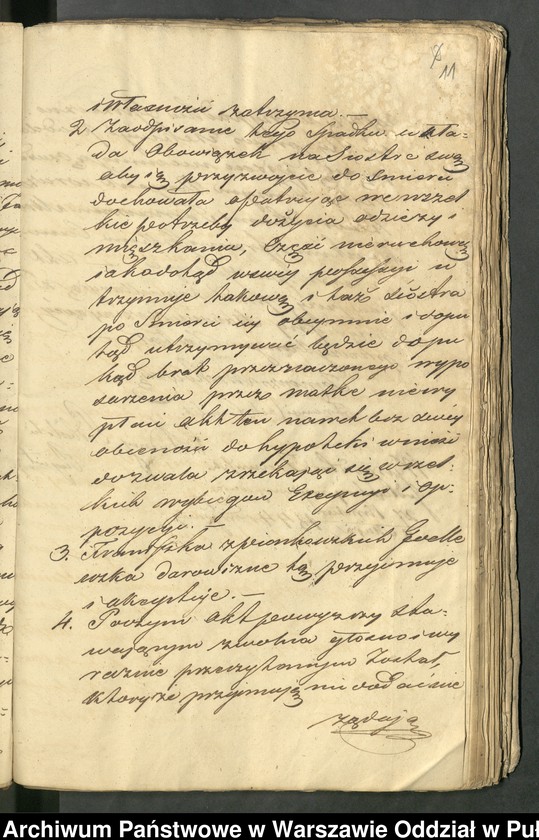 11
i własności zatrzyma. —
2 Zaodpisanie tego Spadku wkła-
da Obowiązek na Siostrę swą
aby ią przyzwoicie do Smierci
dochowała opatrując we wszel
kie potrzeby do życia odzieży i
mięszkania, Część nieruchomą
iaka dotąd w swéj possessyi u
trzymuje takową i taż Siostra
po Smierci iéj obeymie i dopó
kąd utrzymywać będzie dopó
kąd brak przeznaczonego wypo
sarzenia przez matkę niewy
płaci akt ten nawet bez swéj
obecności do hypoteki wnosić
dozwala zrzekając się wszel-
kich wybiegów Excepcyi i op-
pozycyi. —
3. Franciszka z Pionkowskich
darowiznę tą przyimuje
i akceptuje. —
4. Poczym akt powyższy sta-
wającym zwolna głosno i wy
raznie przeczytanym został,
którzy że przyjmują nie dodaiąc
żądają
Archiwum Państwowe w Warszawie Oddział w Puł